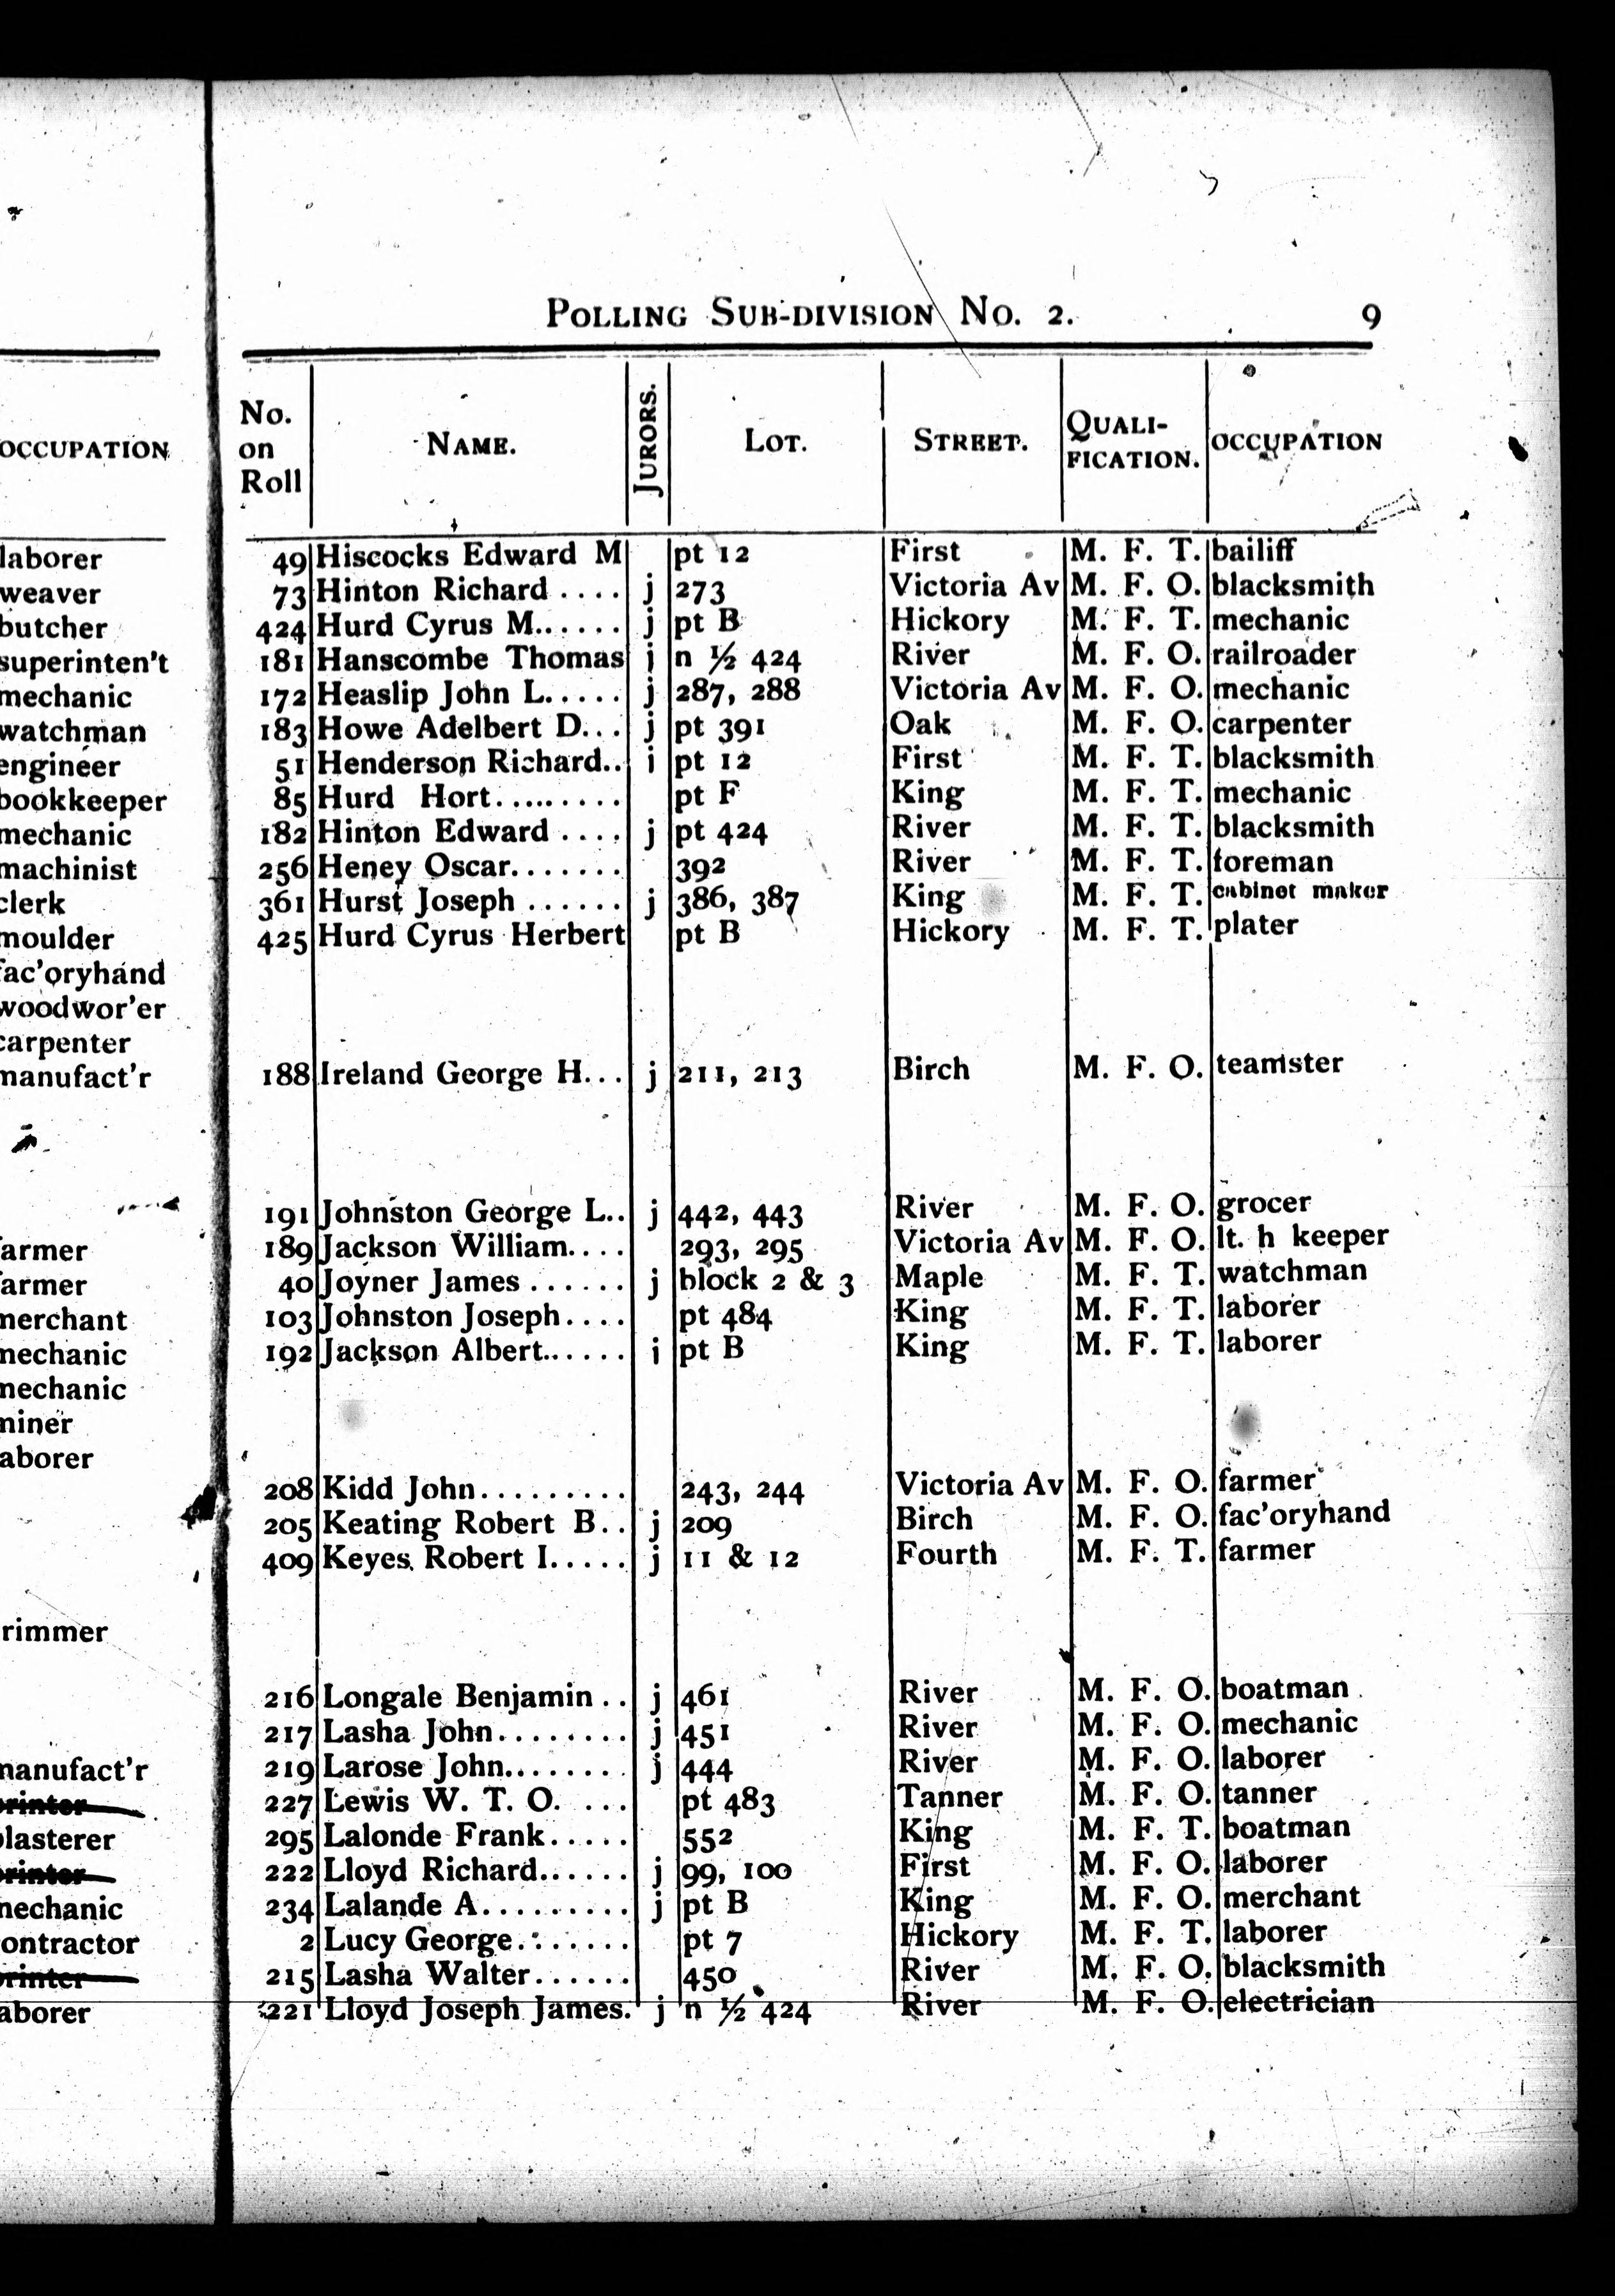 POLLING SUB-DIVISION No. 2. 9
No. on Roll NAME. JURORS. LOT. STREET. QUALI-FICATION. OCCUPATION
49 Hiscocks Edward M pt 12 First M. F. T. bailiff
73 Hinton Richard .... j 273 Victoria Av M. F. O. blacksmith
424 Hurd Cyrus M...... j pt B Hickory M. F. T. mechanic
181 Hanscombe Thomas j n ½ 424 River M. F. O. railroader
172 Heaslip John L..... j 287, 288 Victoria Av M. F. O. mechanic
183 Howe Adelbert D... j pt 391 Oak M. F. O. carpenter
51 Henderson Richard.. i pt 12 First M. F. T. blacksmith
85 Hurd Hort......... pt F King M. F. T. mechanic
182 Hinton Edward .... j pt 424 River M. F. T. blacksmith
256 Heney Oscar....... 392 River M. F. T. foreman
361 Hurst Joseph ...... j 386, 387 King M. F. T. cabinet maker
425 Hurd Cyrus Herbert pt B Hickory M. F. T. plater
188 Ireland George H... j 211, 213 Birch M. F. O. teamster
191 Johnston George L.. j 442, 443 River M. F. O. grocer
189 Jackson William.... 293, 295 Victoria Av M. F. O. lt. h keeper
40 Joyner James ...... j block 2 & 3 Maple M. F. T. watchman
103 Johnston Joseph.... pt 484 King M. F. T. laborer
192 Jackson Albert...... i pt B King M. F. T. laborer
208 Kidd John......... 243, 244 Victoria Av M. F. O. farmer
205 Keating Robert B.. j 209 Birch M. F. O. fac'oryhand
409 Keyes Robert I..... j 11 & 12 Fourth M. F. T. farmer
216 Longale Benjamin .. j 461 River M. F. O. boatman
217 Lasha John........ j 451 River M. F. O. mechanic
219 Larose John....... j 444 River M. F. O. laborer
227 Lewis W. T. O. ... pt 483 Tanner M. F. O. tanner
295 Lalonde Frank..... 552 King M. F. T. boatman
222 Lloyd Richard...... j 99, 100 First M. F. O. laborer
234 Lalande A......... j pt B King M. F. O. merchant
2 Lucy George....... pt 7 Hickory M. F. T. laborer
215 Lasha Walter...... 450 River M. F. O. blacksmith
221 Lloyd Joseph James. j n ½ 424 River M. F. O. electrician
OCCUPATION
laborer
weaver
butcher
superinten't
mechanic
watchman
engineer
bookkeeper
mechanic
machinist
clerk
moulder
fac'oryhand
woodwor'er
carpenter
manufact'r
armer
armer
merchant
mechanic
mechanic
miner
aborer
rimmer
manufact'r
printer
plasterer
printer
mechanic
ontractor
printer
aborer